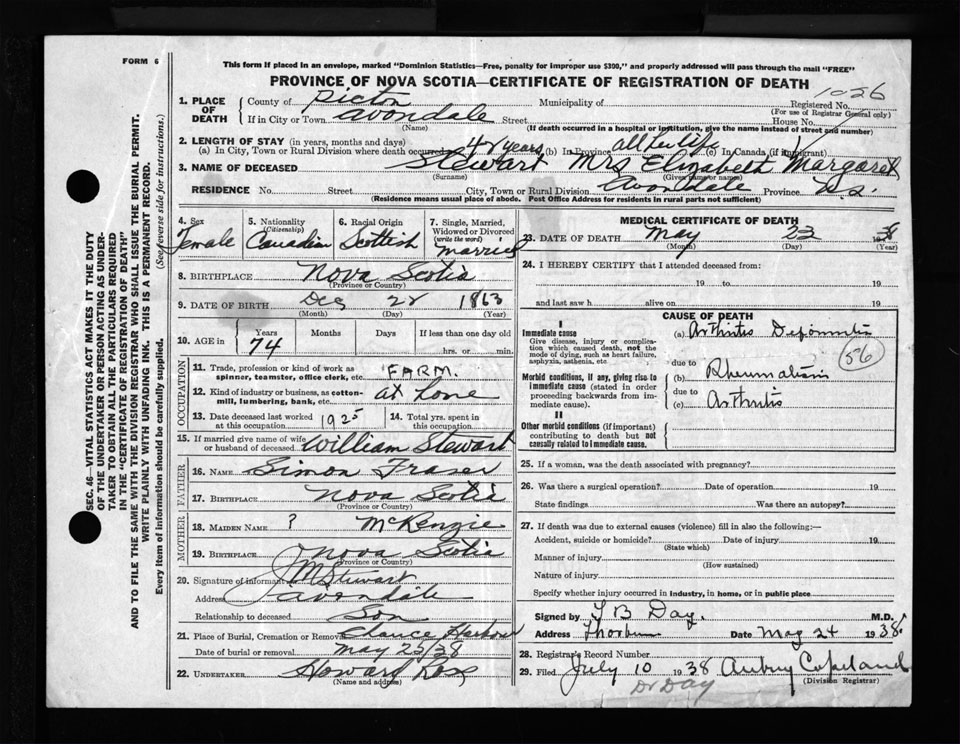 FORM 6
This form if placed in an envelope, marked "Dominion Statistics—Free, penalty for improper use $300," and properly addressed will pass through the mail "FREE"
PROVINCE OF NOVA SCOTIA—CERTIFICATE OF REGISTRATION OF DEATH
1026
SEC. 46—VITAL STATISTICS ACT MAKES IT THE DUTY
OF THE UNDERTAKER OR PERSON ACTING AS UNDER-
TAKER TO OBTAIN ALL THE PARTICULARS REQUIRED
IN THE "CERTIFICATE OF REGISTRATION OF DEATH"
AND TO FILE THE SAME WITH THE DIVISION REGISTRAR WHO SHALL ISSUE THE BURIAL PERMIT.
WRITE PLAINLY WITH UNFADING INK. THIS IS A PERMANENT RECORD.
Every item of information should be carefully supplied. (See reverse side for instructions.)
1. PLACE OF DEATH
County of Pictou Municipality of Registered No.
(For use of Registrar General only)
If in City or Town Avondale Street House No.
(Name) (If death occurred in a hospital or institution, give the name instead of street and number)
2. LENGTH OF STAY (in years, months and days)
(a) In City, Town or Rural Division where death occurred 48 years, (b) In Province all her life (c) In Canada (if immigrant)
3. NAME OF DECEASED Stewart Mrs Elizabeth Margaret
(Surname) (Given name or names)
RESIDENCE No. Street City, Town or Rural Division Avondale Province N.S.
(Residence means usual place of abode. Post Office Address for residents in rural parts not sufficient)
4. Sex Female
5. Nationality (Citizenship) Canadian
6. Racial Origin Scottish
7. Single, Married, Widowed or Divorced (write the word) Married
8. BIRTHPLACE Nova Scotia
(Province or Country)
9. DATE OF BIRTH Dec 28 1863
(Month) (Day) (Year)
10. AGE in Years Months Days If less than one day old
74 hrs. or min.
OCCUPATION
11. Trade, profession or kind of work as spinner, teamster, office clerk, etc. FARM.
12. Kind of industry or business, as cotton-mill, lumbering, bank, etc. at home
13. Date deceased last worked at this occupation 1925
14. Total yrs. spent in this occupation
15. If married give name of wife or husband of deceased William Stewart
FATHER
16. NAME Simon Fraser
17. BIRTHPLACE Nova Scotia
(Province or Country)
MOTHER
18. MAIDEN NAME ? McKenzie
19. BIRTHPLACE Nova Scotia
(Province or Country)
20. Signature of informant J M Stewart
Address Avondale
Relationship to deceased Son
21. Place of Burial, Cremation or Removal Harbour
Date of burial or removal May 25/38
22. UNDERTAKER Howard Ross
(Name and address)
MEDICAL CERTIFICATE OF DEATH
23. DATE OF DEATH May 23 1938
(Month) (Day) (Year)
24. I HEREBY CERTIFY that I attended deceased from:
19 to 19
and last saw h alive on 19
CAUSE OF DEATH
I
Immediate cause
Give disease, injury or complication which caused death, not the mode of dying, such as heart failure, asphyxia, asthenia, etc.
(a) Arthritis Deformans
56
due to
Morbid conditions, if any, giving rise to immediate cause (stated in order proceeding backwards from immediate cause).
(b) Rheumatism
due to
(c) Arthritis
II
Other morbid conditions (if important) contributing to death but not causally related to immediate cause.
25. If a woman, was the death associated with pregnancy?
26. Was there a surgical operation? Date of operation 19
State findings Was there an autopsy?
27. If death was due to external causes (violence) fill in also the following:—
Accident, suicide or homicide? Date of injury 19
(State which)
Manner of injury
(How sustained)
Nature of injury
Specify whether injury occurred in industry, in home, or in public place
Signed by T B Day. M.D.
Address Thorburn Date May 24 1938.
28. Registrar's Record Number
29. Filed July 10 1938 Aubrey Copeland
(Division Registrar)
Dr Day